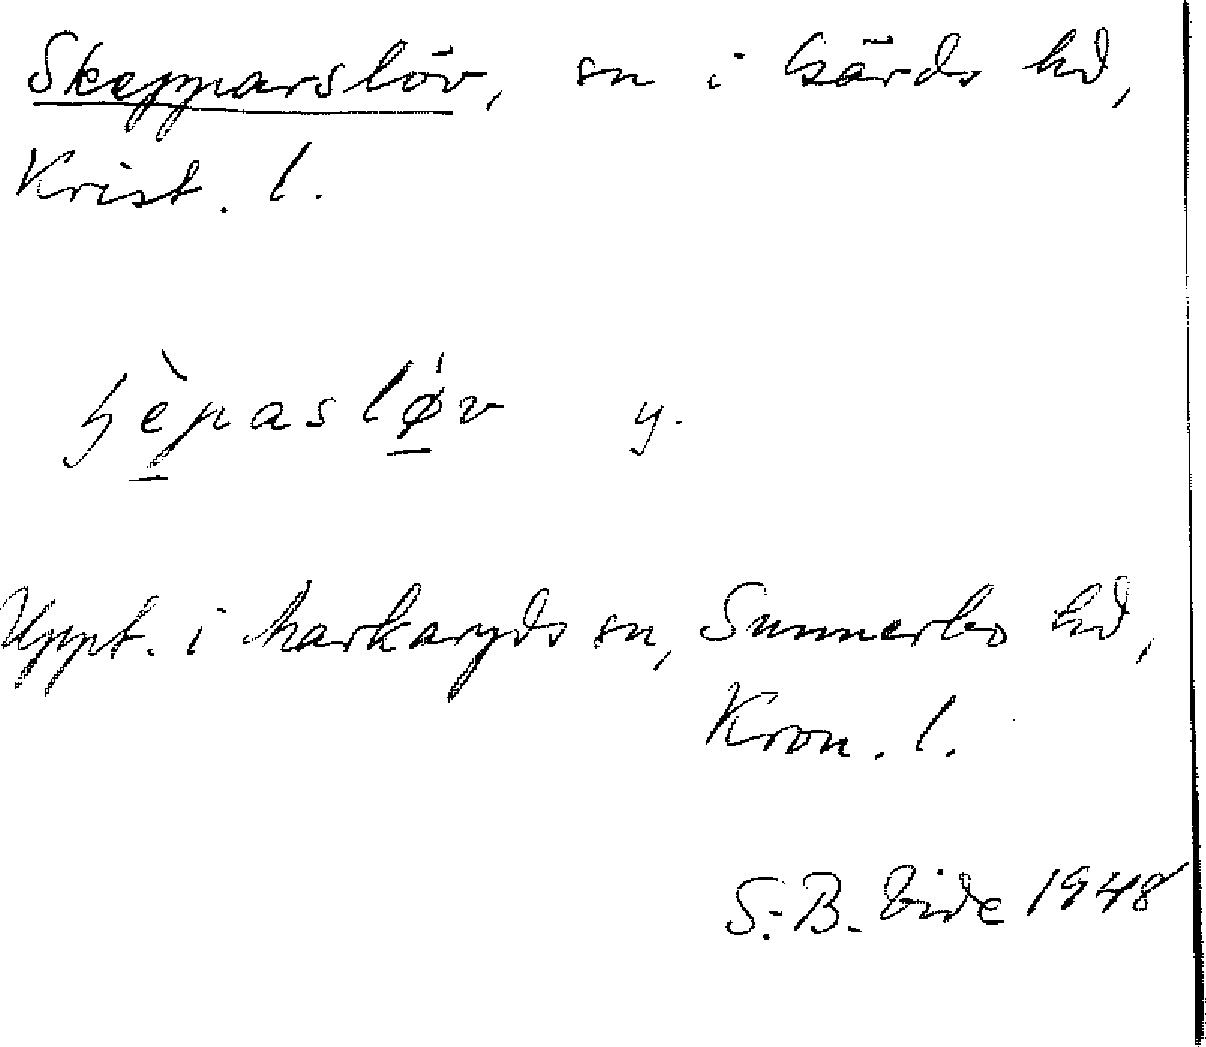 Skepparslöv, sn i Gärds hd,
Krist. l.
ʃèpasløv́ y.
Uppt. i Markaryds sn, Sunnerbo hd,
Kron. l.
S. B. Vide 1948